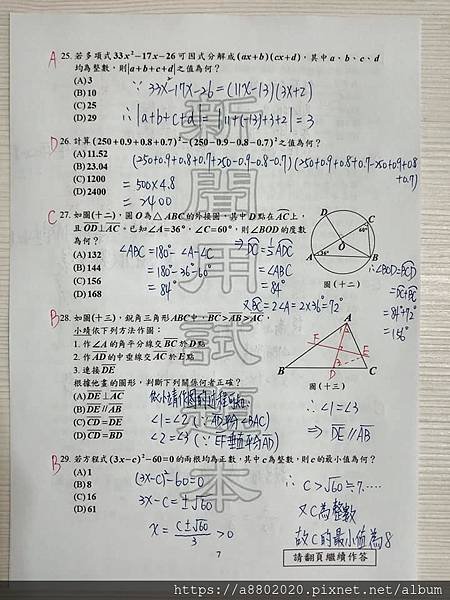 A 25. 若多項式33x²−17x−26可因式分解成(ax+b)(cx+d)，其中a、b、c、d
均為整數，則|a+b+c+d|之值為何？
(A) 3
(B) 10
(C) 25
(D) 29
∵ 33x²-17x-26=(11x-13)(3x+2)
∴ |a+b+c+d|=|11+(-13)+3+2|=3
D 26. 計算(250+0.9+0.8+0.7)²−(250−0.9−0.8−0.7)²之值為何？
(A) 11.52
(B) 23.04
(C) 1200
(D) 2400
(250+0.9+0.8+0.7+250-0.9-0.8-0.7)(250+0.9+0.8+0.7-250+0.9+0.8
+0.7)
=500×4.8
=2400
C 27. 如圖(十二)，圓O為△ABC的外接圓，其中D點在AC上，
且OD⊥AC。已知∠A=36°，∠C=60°，則∠BOD的度數
為何？
(A) 132
(B) 144
(C) 156
(D) 168
∠ABC=180°-∠A-∠C
=180°-36°-60°
=84°
⇒ DC=½ADC
=∠ABC
=84°
又BC=2∠A=2×36°=72°
A
B
C
D
O
36°
60°
圖(十二)
∴∠BOD=BCD
=DC+BC
=84°+72°
=156°
B 28. 如圖(十三)，銳角三角形ABC中，BC>AB>AC，
小靖依下列方法作圖：
1. 作∠A的角平分線交BC於D點
2. 作AD的中垂線交AC於E點
3. 連接DE
根據他畫的圖形，判斷下列關係何者正確？
(A) DE⊥AC
(B) DE//AB
(C) CD=DE
(D) CD=BD
依小靖作圖的過程可知
∠1=∠2(∵AD平分∠BAC)
∠2=∠3(∵EF垂直平分AD)
A
F
E
B
D
C
圖(十三)
∴∠1=∠3
⇒ DE//AB
B 29. 若方程式(3x−c)²−60=0的兩根均為正數，其中c為整數，則c的最小值為何？
(A) 1
(B) 8
(C) 16
(D) 61
(3x-c)²-60=0
3x-c=±√60
x=c±√60/3>0
∴ c>√60≒7.…
又c為整數
故c的最小值為8
新聞用試題本
7
請翻頁繼續作答
https://a8802020.pixnet.net/album